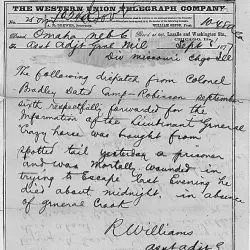 THE WESTERN UNION TELEGRAPH COMPANY.
Omaha Neb 6
Asst Adjt Genl Mil
Div Missouri Chgo Ills
The following dispatch from Colonel
Bradley Dated Camp Robinson September
sixth respectfully forwarded for the
Information of the Lieutenant General
Crazy horse was brought from
spotted tail yesterday a prisoner
and was Mortally wounded in
trying to Escape last Evening he
died about midnight, in absence
of general Crook
R Williams
asst adjt G